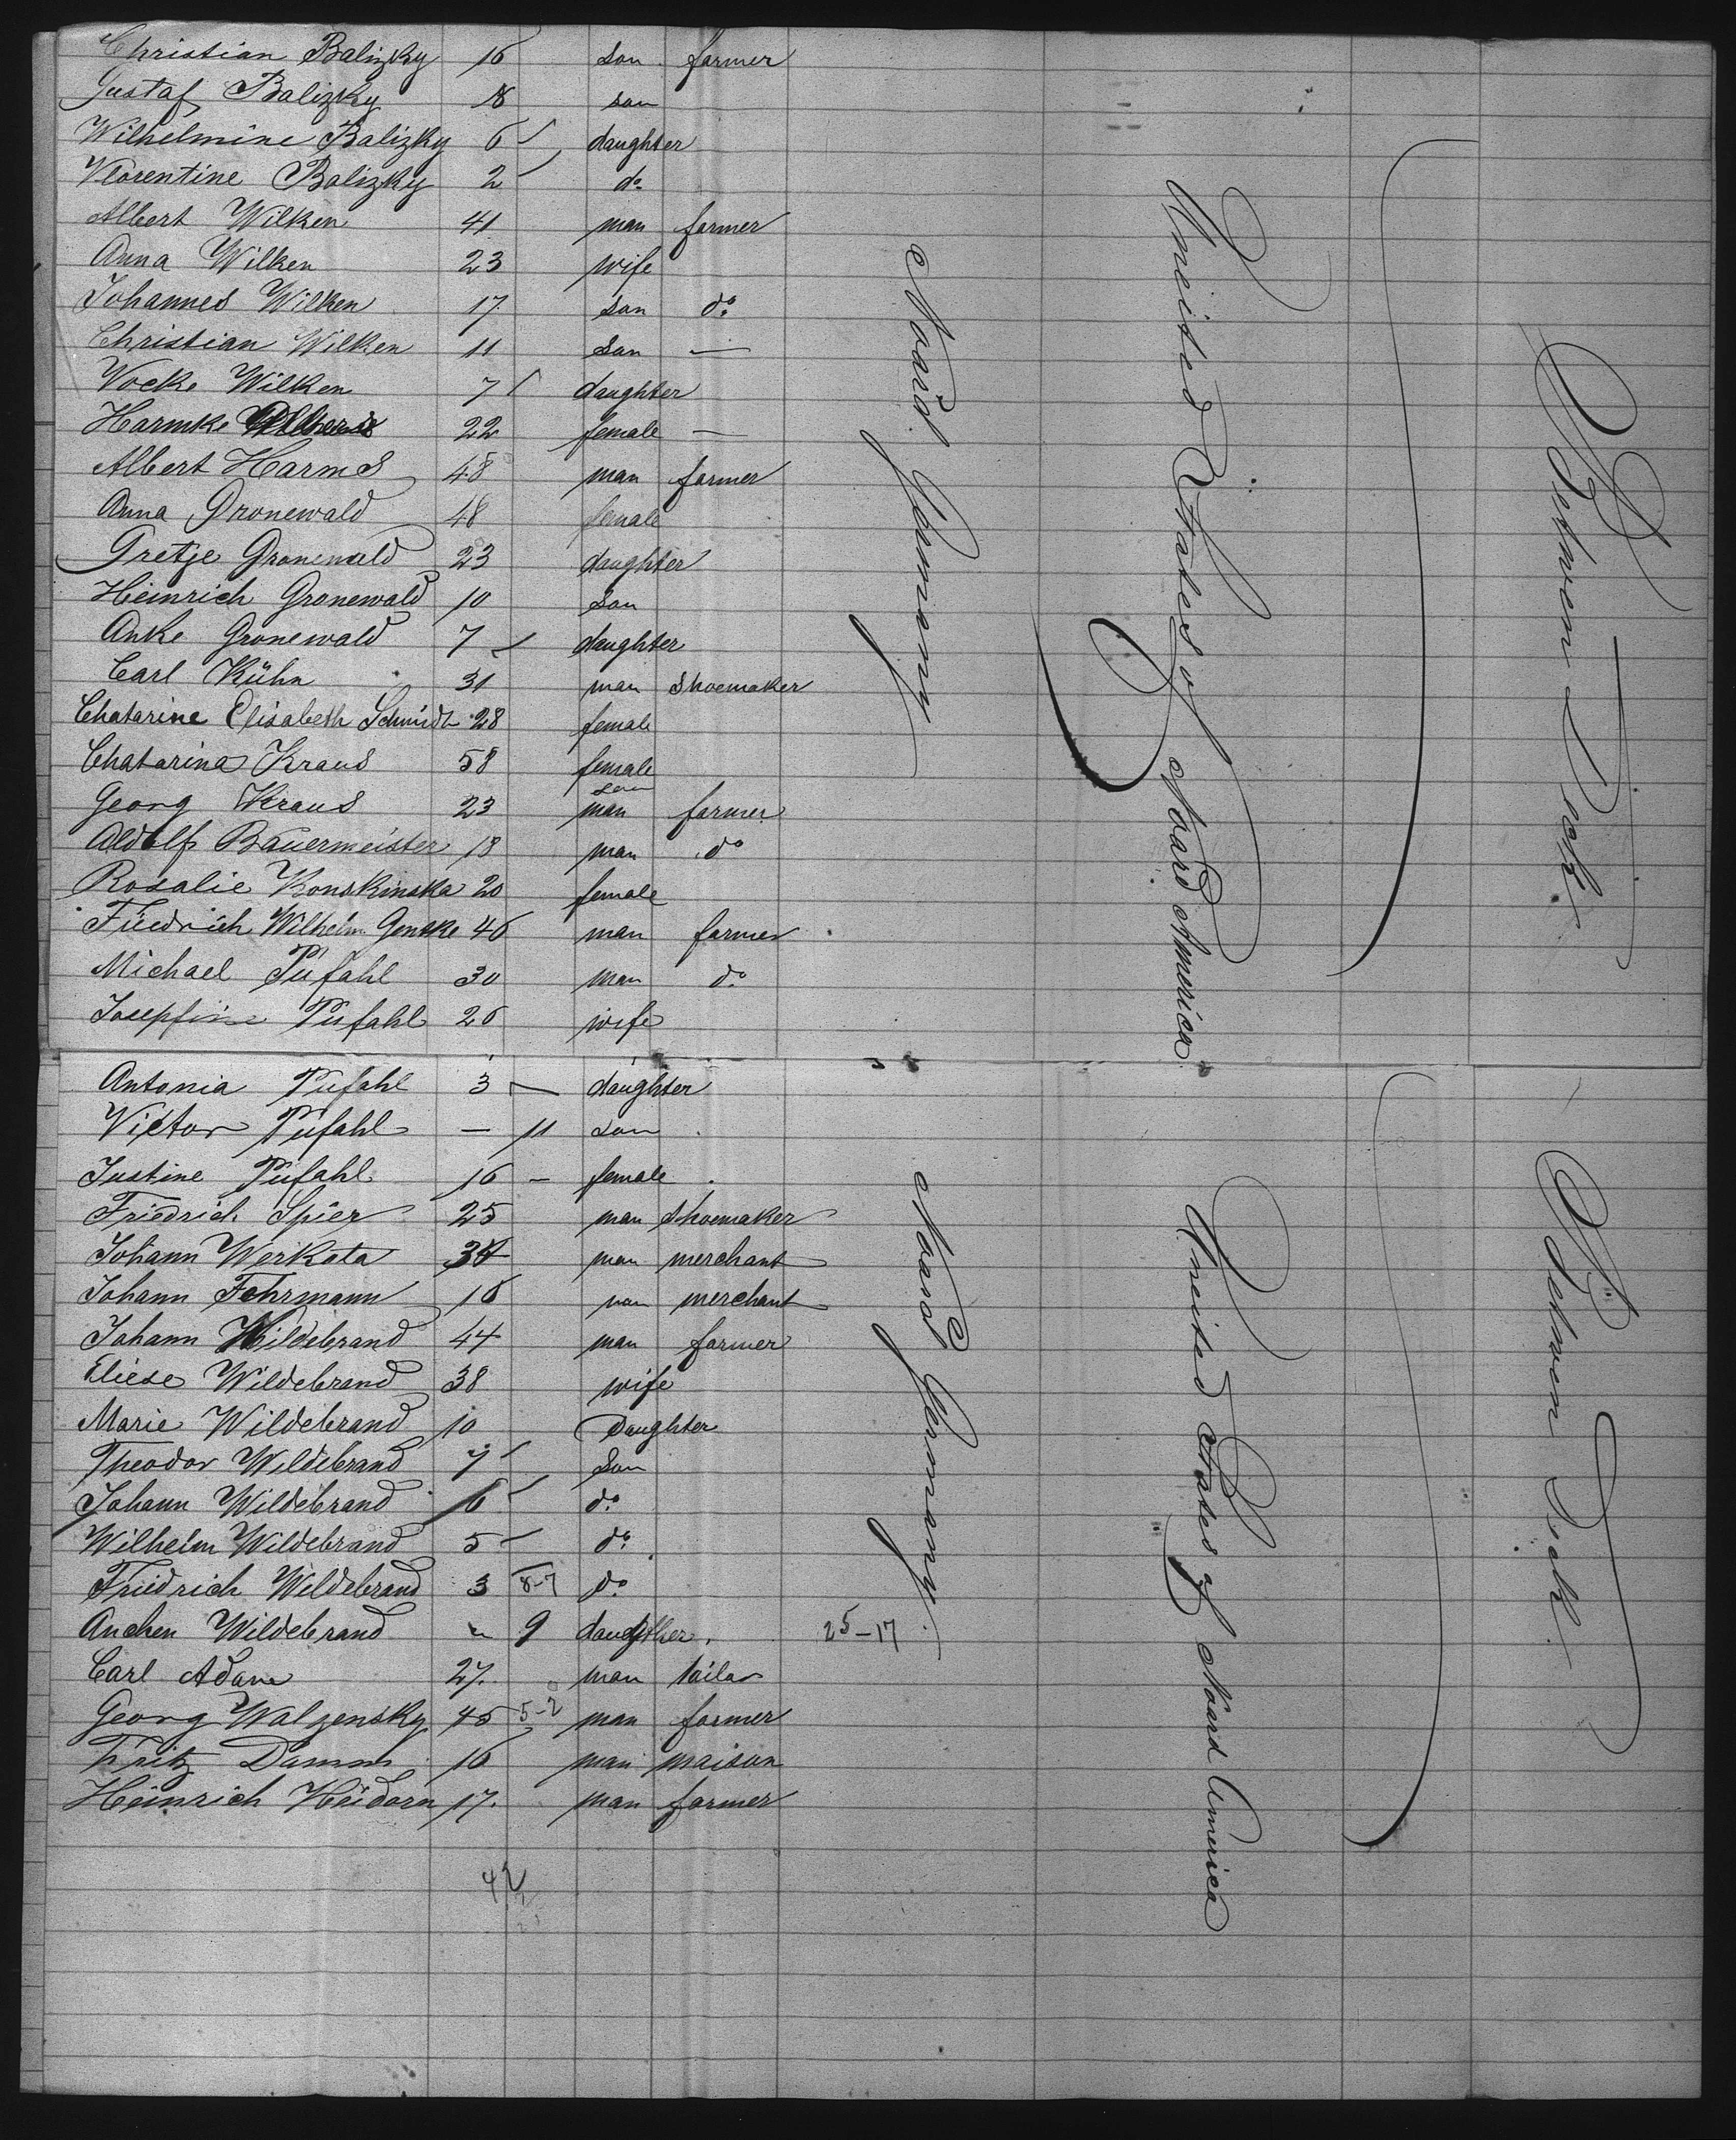 Christian Balizky 16 son farmer
Gustaf Balizky 8 son
Wilhelmine Balizky 6 daughter
Florentine Balizky 2 do
Albert Wilken 41 man farmer
Anna Wilken 23 wife
Johannes Wilken 17 son do
Christian Wilken 11 son —
Vocke Wilken 7 daughter
Harmke 22 female —
Albert Harms 48 man farmer
Anna Gronewald 48 female
Gretje Gronewald 23 daughter
Heinrich Gronewald 10 son
Anke Gronewald 7 daughter
Carl Kühn 31 man Shoemaker
Chatarine Elisabeth Schmidt 28 female
Chatarina Kraus 58 female
Georg Kraus 23 son man farmer
Aldolf Bauermeister 18 man do
Rosalie Konskinska 20 female
Friedrich Wilhelm Genske 46 man farmer
Michael Püfahl 30 man do
Josepfine Püfahl 26 wife
Noard Germany
Uneited States of Noard America
Betwen Deck
Antonia Püfahl 3 — daughter
Victor Püfahl — 11 son
Justine Püfahl 16 — female
Friedrich Spier 25 man shoemaker
Johann Werkota 34 man merchant
Johann Fehrmann 16 man merchant
Johann Wildebrand 44 man farmer
Eliese Wildebrand 38 wife
Marie Wildebrand 10 Daughter
Theodor Wildebrand 7 son
Johann Wildebrand 6 do
Wilhelm Wildebrand 5 do
Friedrich Wildebrand 3 8-7 do
Anchen Wildebrand 9 daugther. 25-17
Carl Adam 27. man tailor
Georg Walzensky 45 5-2 man farmer
Fritz Damm 16 man maison
Heinrich Heidorn 17. man farmer
42
Noard Germany.
Uneited States of Noard America
Betwen Deck